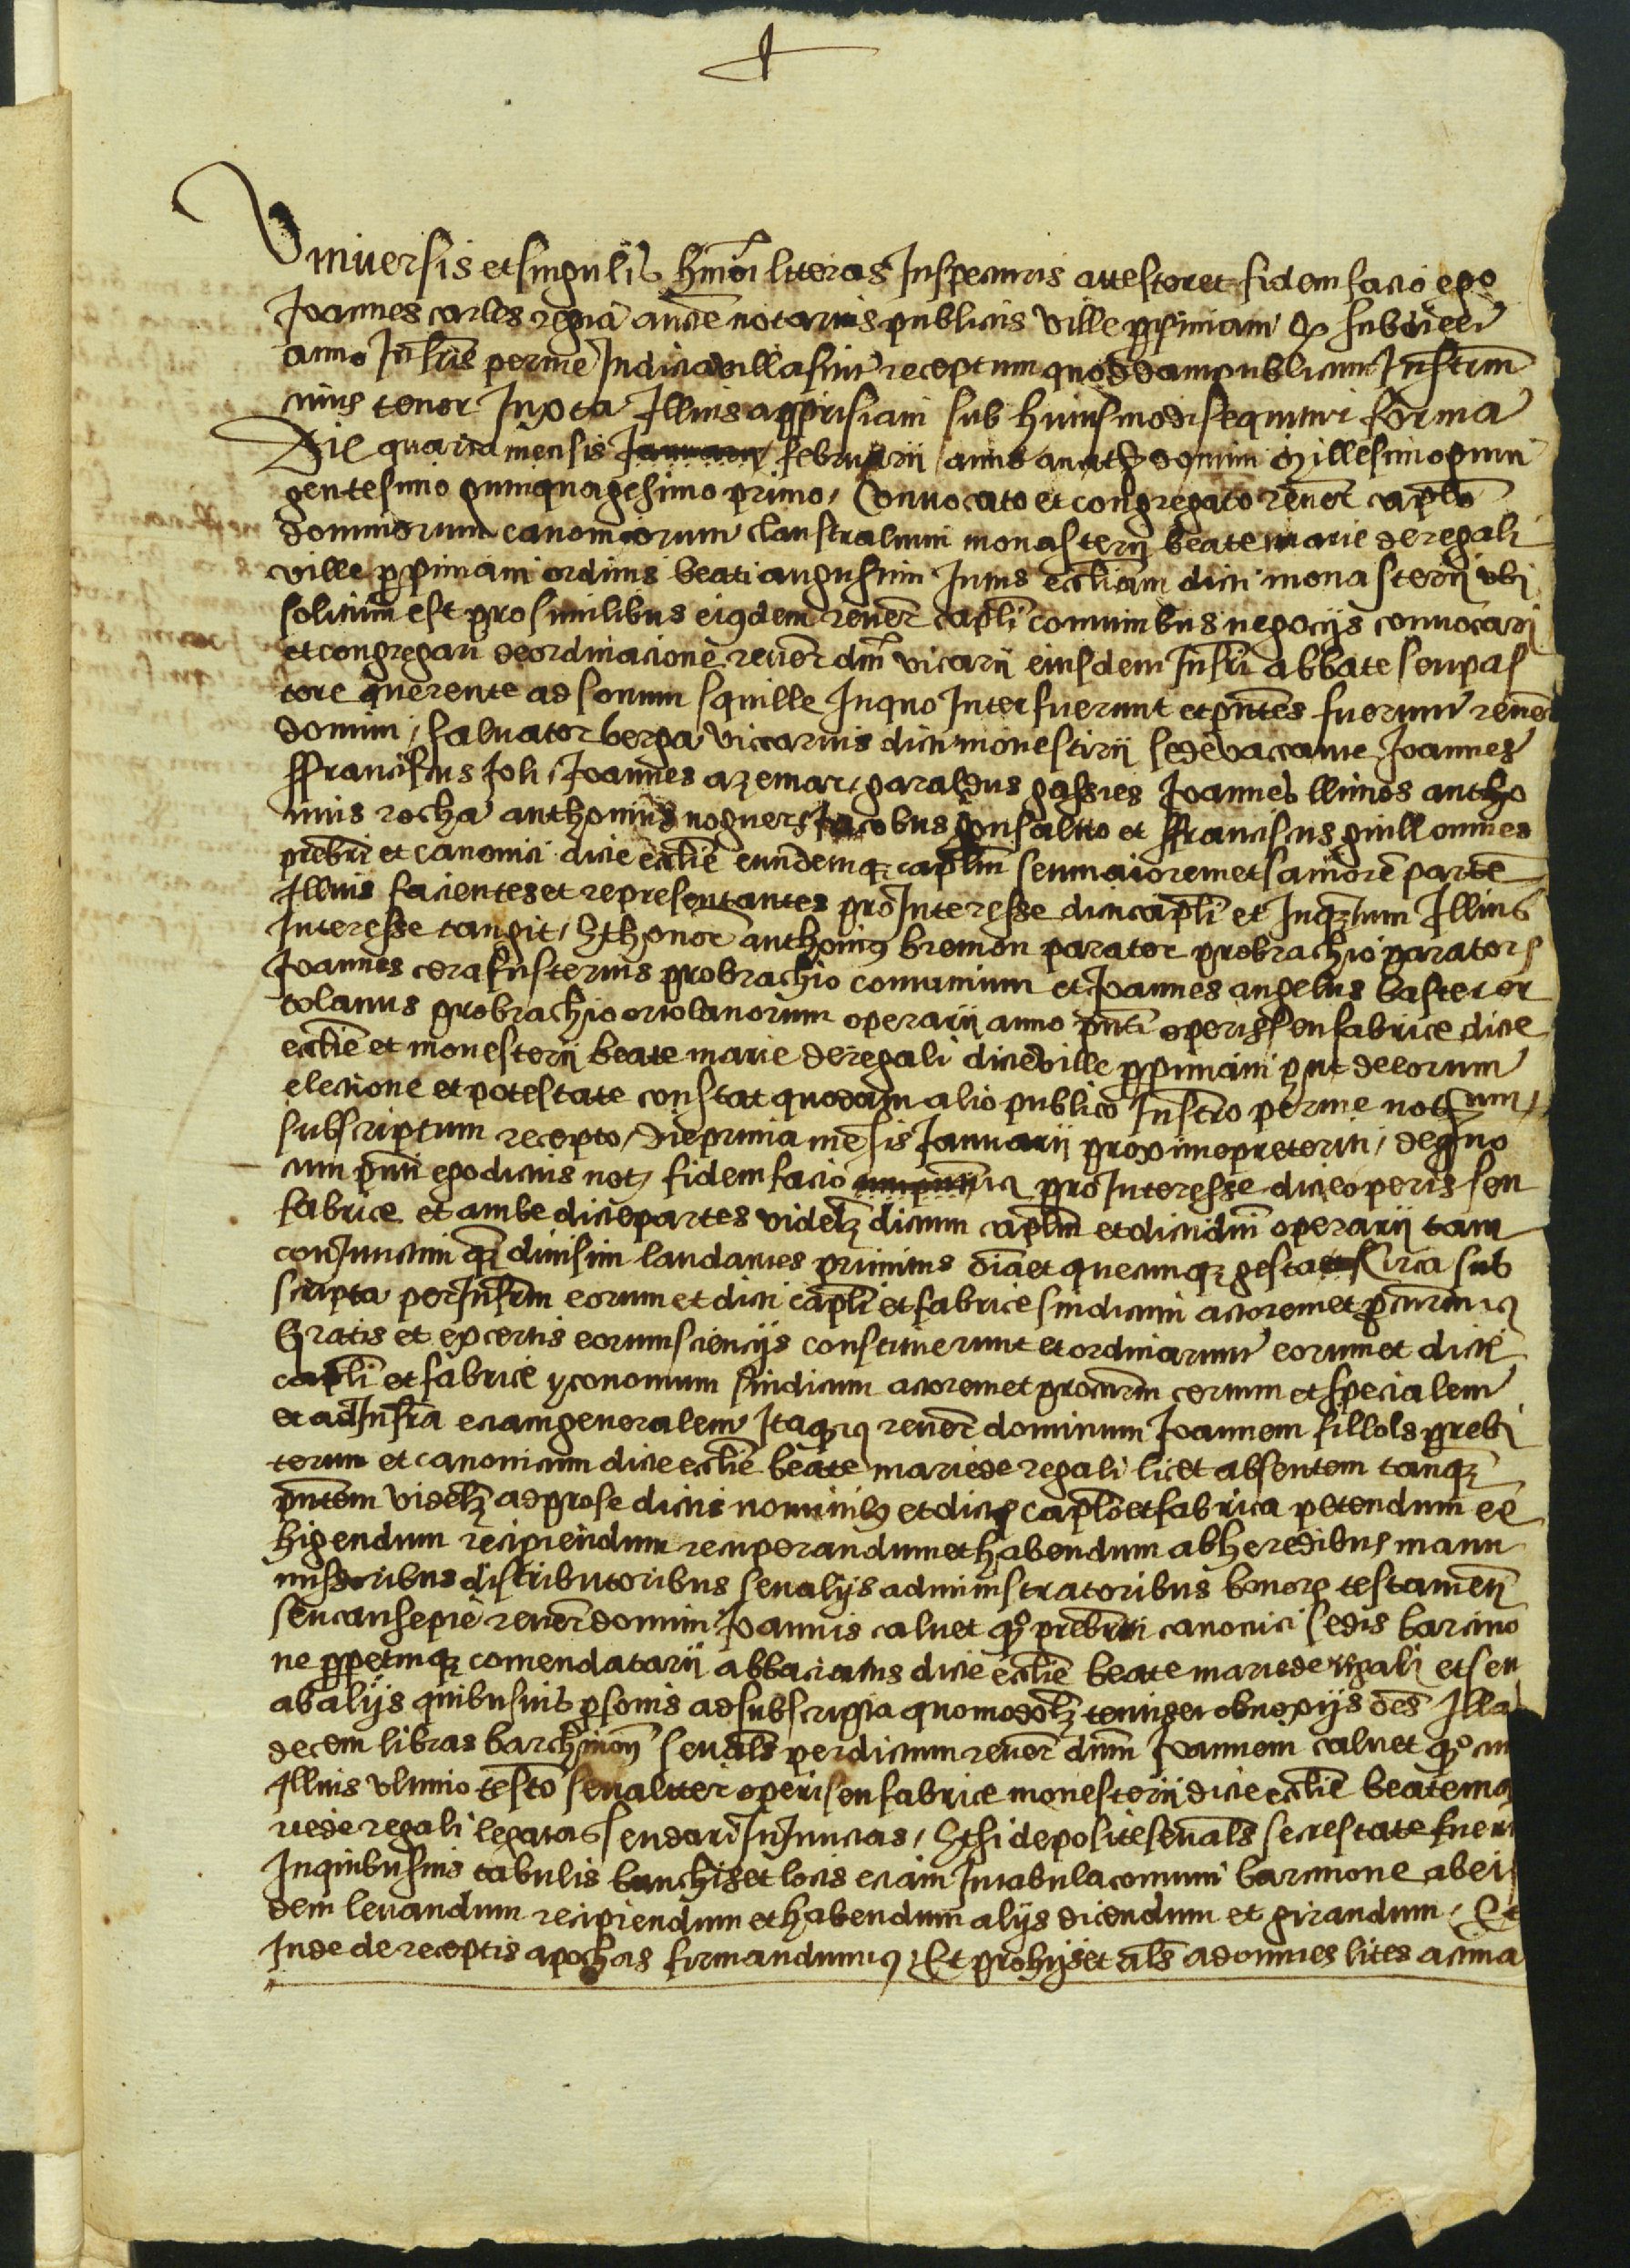 Universis et singulis hmoi litteras Inspecturis attestor et fidem facio ego
Joannes carles regia aucte notarius publicus ville ppiniani q sub die et
anno Infris per me In dicta villa fuit receptum quoddam publicum Instrm
cuius tenor Juxta Illius apprisiam sub huiusmodi sequitur forma
Die quarta mensis Januarii februarii anno a natte domini millesimo quin
gentesimo quinquagesimo primo, Convocato et congregato reuert caplo
dominorum canonicorum claustralium monasterij beate marie de regali
ville ppiniani ordinis beati augustini Intus eccliam dicti monasterij ubi
solitum est pro similibus eiusdem reuert capli comunibus negocijs convocari
et congregari de ordinacione reuert dni vicarij eiusdem Infri abbate seu pas
tore querente ad sonum squille In quo Interfuerunt et pntes fuerunt reuert
domini, saluator berga viccarius dicti monestirij sede vaccante Joannes
ffranciscus Joli, Joannes azemar, garaldus gassies Joannes llimos antho
nius rocha anthonius noguers Jacobus gonsalvo et ffranciscus guill omnes
prebri et canonici dicte ecclie eundemq caplm seu maiorem et saniorem partem
Illius facientes et representantes pro Interesse dicti capli et Inqtum Illius
Interesse tangit, Et honor anthonius bremon parator pro brachio parator
Joannes cera fusterius pro brachio comunium et Joannes angelus baster or
tolanus pro brachio ortolanorum operarij anno pnti operis seu fabrice dicte
ecclie et monesterij beate marie de regali dicte ville ppiniani put de eorum
electione et potestate constat quodam alio publico Instro per me not um,
subscriptum recepto, die prima mesis Januarij proximo preteriti, de quo
cum pnti ego dictus not fidem facio pro Interesse dicte operis seu
fabrice et ambe dicte partes videlz dictum caplm et dicti dni operarij tam
conjunctim qz diuisim laudantes primitus oia et quecunqz gesta circa sub
scripta per Infrm eorum et dicti capli et fabrice sindicum actorem et pcurm
Gratis et ex certis eorum sciencijs constituerunt et ordinarunt eorum et dicti
capli et fabrice yconomum sindicum actorem et procurm certum et specialem
et ad Infra eciam generalem Itaqz reuert dominum Joannem fillols prebi
terum et canonicum dicte ecclie beate marie de regali licet absentem tanqz
pntem videlz ad pro se dictis nominibz et dict caplo et fabrica petendum ex
higendum recipiendum recuperandum et habendum ab heredibus manu
missoribus distributoribus seu alijs administratoribus bonor testamenti
seu cause pie reuer domini Joannis caluet q prebri canonici sedis barcino
ne ppetuiqz comendatarij abbaciatus dicte ecclie beate marie de regali et seu
ab alijs quibusuis psonis ad subscripta quomodolz tentis et obnoxijs oes Illa
decem libras barchinon seu als per dictum reuert dnm Joannem caluet q cu
Illius ultimo testo seu aliter operi seu fabrice monesterij dicte ecclie beate ma
rie de regali legatas seu dari Injunctas, Et si deposite seu als secrestate fuer
In quibusuis tabulis banchis et locis eciam In tabula comuni barcinone ab eis
dem leuandum recipiendum et habendum alijs dicendum et girandum, Et
Inde de receptis apochas firmandum, Et pro hijs et als ad omnes lites activa